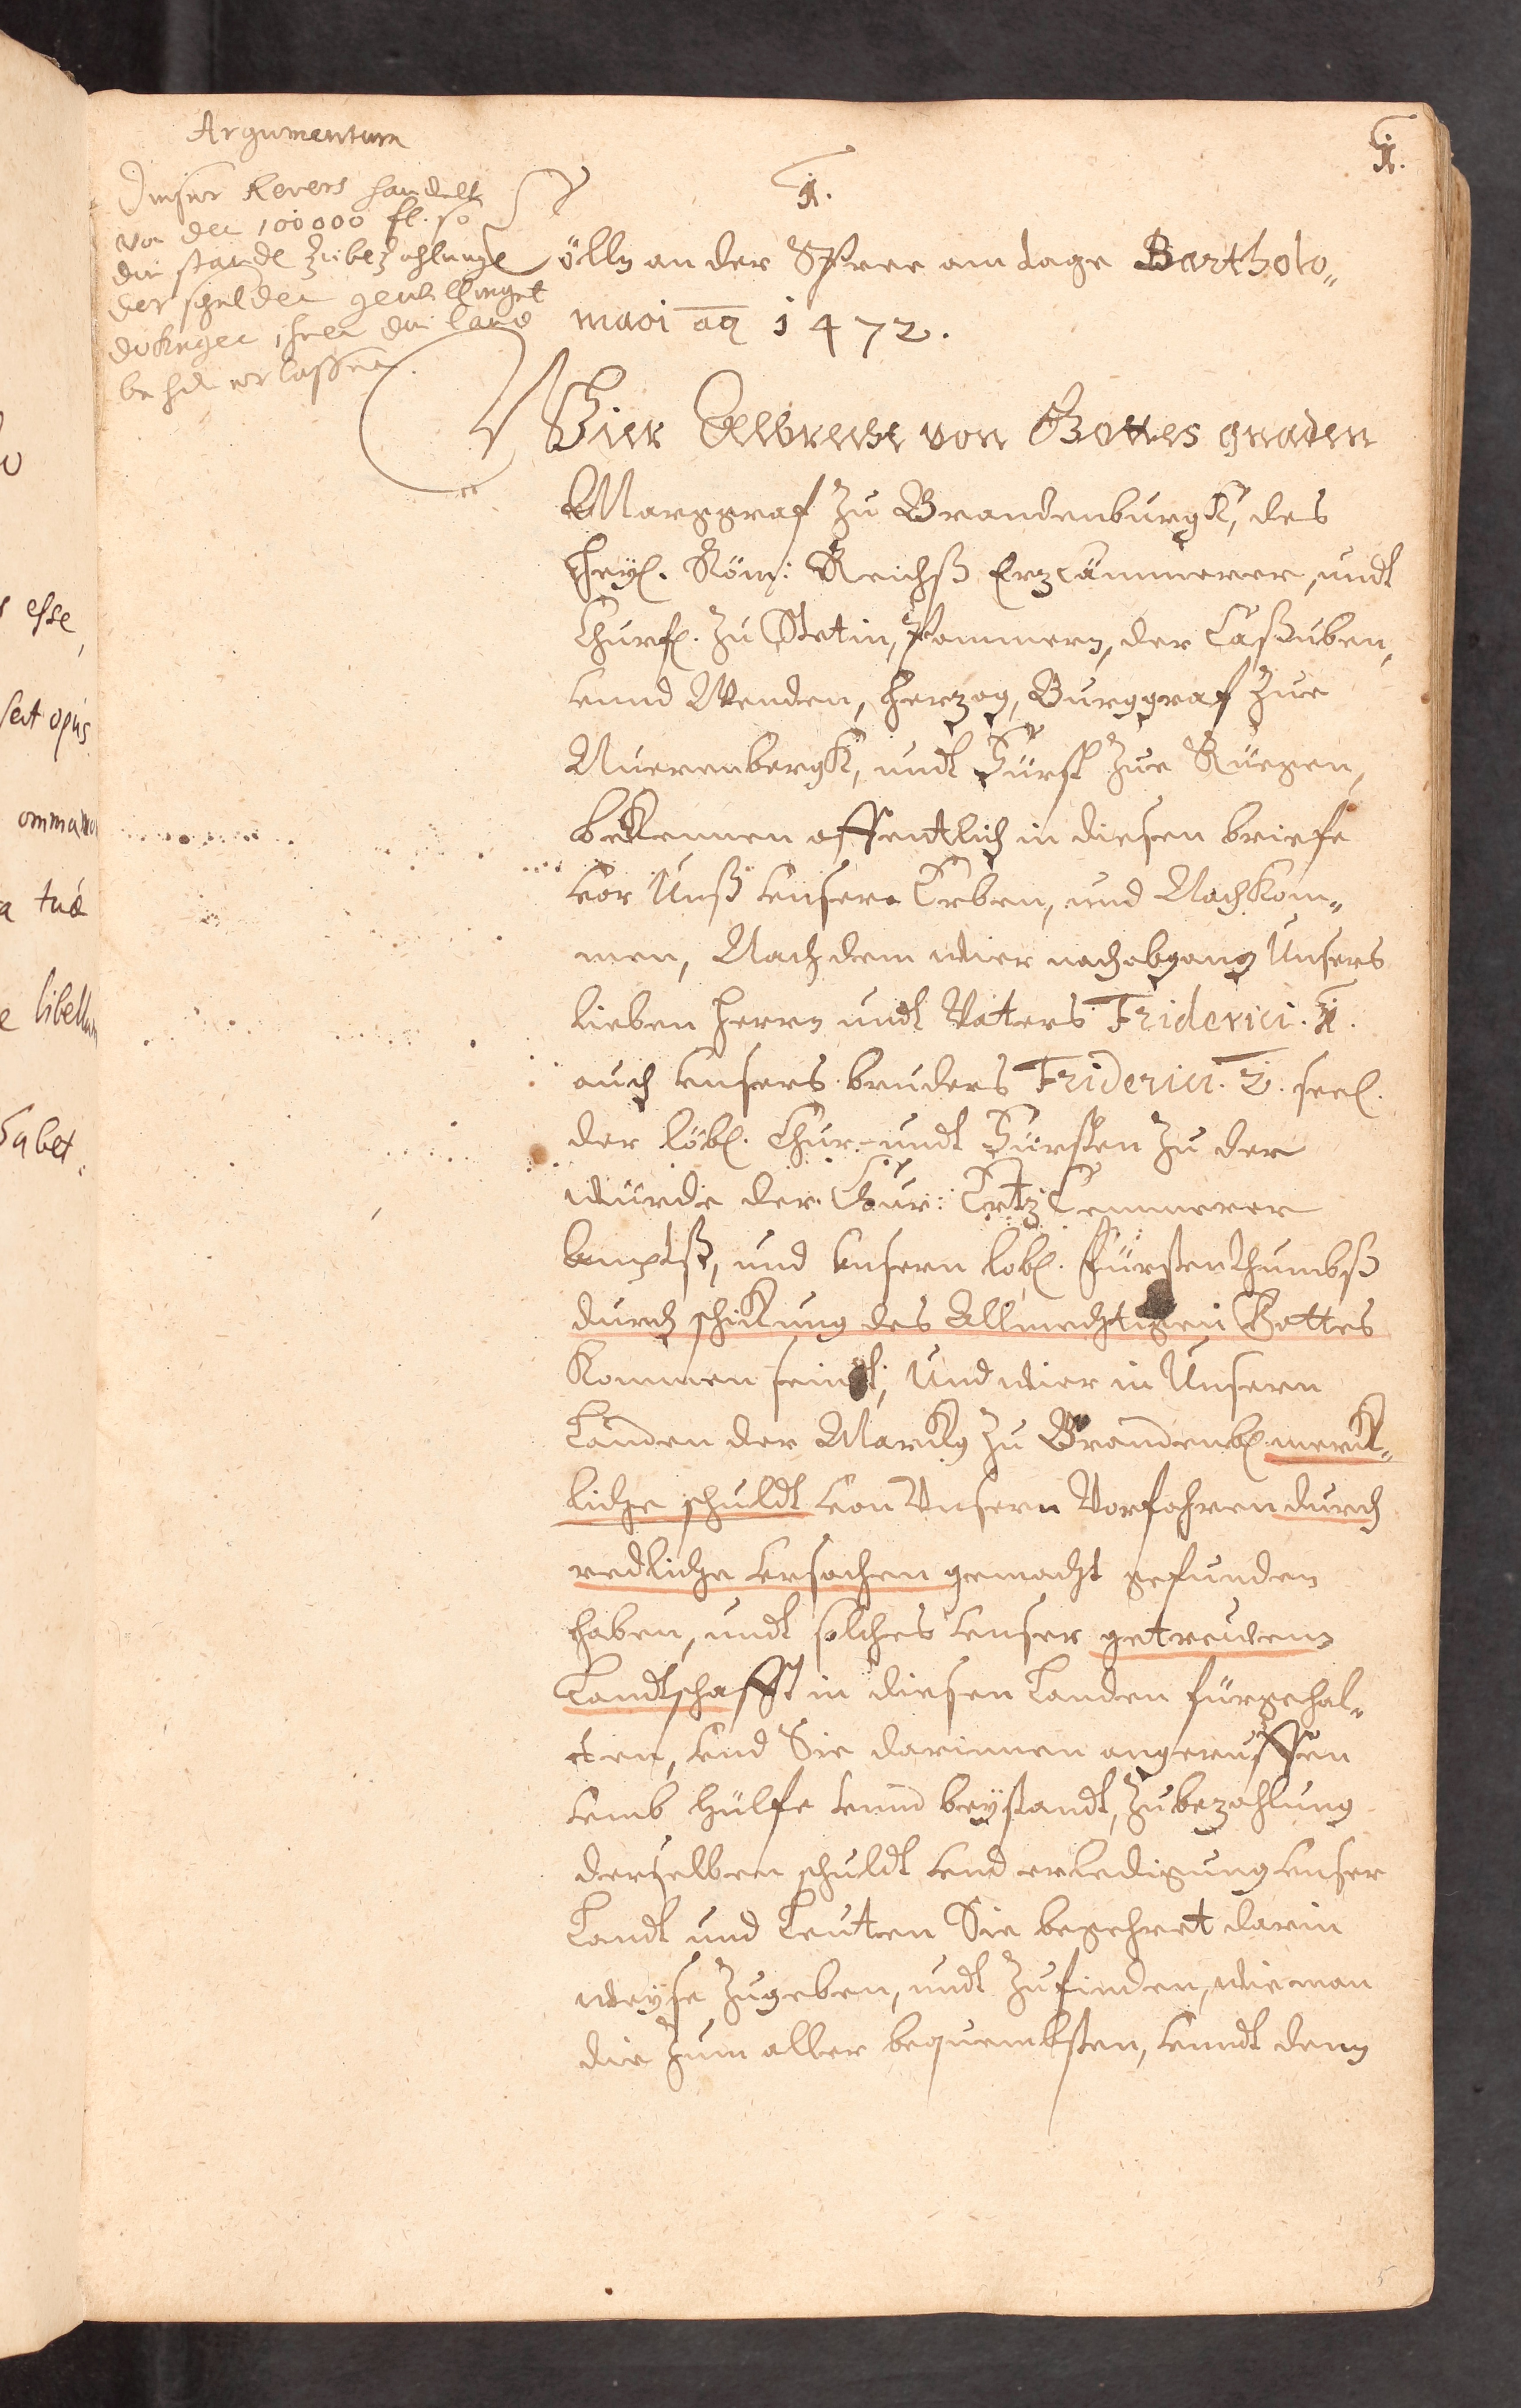 Argumentum
Dieser Revers handelt
von den 100000 fl. so
die stände zu bezahlunge
der schulden gewilliget
dokegen ihnen die land
behde erlassen.
1.
1.
Cölln an der Spree am tage Bartholo„
maei ao 1472.
Wier Albrecht von Gottes gnaden
Marggraf zu Brandenburgk, des
Heyl. Röm: Reichß Erzcämmerer, undt
Churf. zu Stetin, Pommern, der Caßuben,
vnnd Wenden, Herzog, Burggraf zue
Nurenbergk, undt Fürst zue Rügen,
bekennen offentlich in diesen briefe
vor Unß vnsere Erben, und Nachkom„
men, Nachdem wier nach abgang Unsers
lieben Herrn undt Vaters Friderici. 1.
auch vnsers bruders Friderici. 2. seel.
der löbl. Chur- undt Fürsten zu der
würde der Chur: Ertz Cemmerer
bmptß, und vnsern löbl. Fürstenthumbß
durch schikung des Allmechtigen Gottes
kommen seindt, Und wier in Unsern
Landen der Markg zu Brandenb. merck„
liche schuldt von Vnsern Vorfahren durch
redliche vrsachen gemacht gefunden
haben, undt solches vnser getreuen
Landtschafft in diesen Landen fürgehal„
ten, vnd Sie darinnen angeruffen
vmb hülfe vnnd beystandt, zu bezahlung
derselben schuldt vnd erledigung vnser
Landt und Leuten Sie begehret darin
weyse zugeben, undt zu finden, wie man
die zum aller bequembsten, vnndt denn
5
esse,
opus
omma
tuâ
libellum
habet.